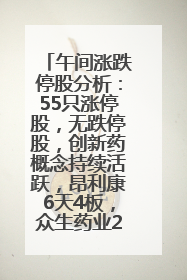 「午间涨跌
停股分析：
55只涨停
股，无跌停
股，创新药
概念持续活
跃，昂利康
6天4板，
众生药业2